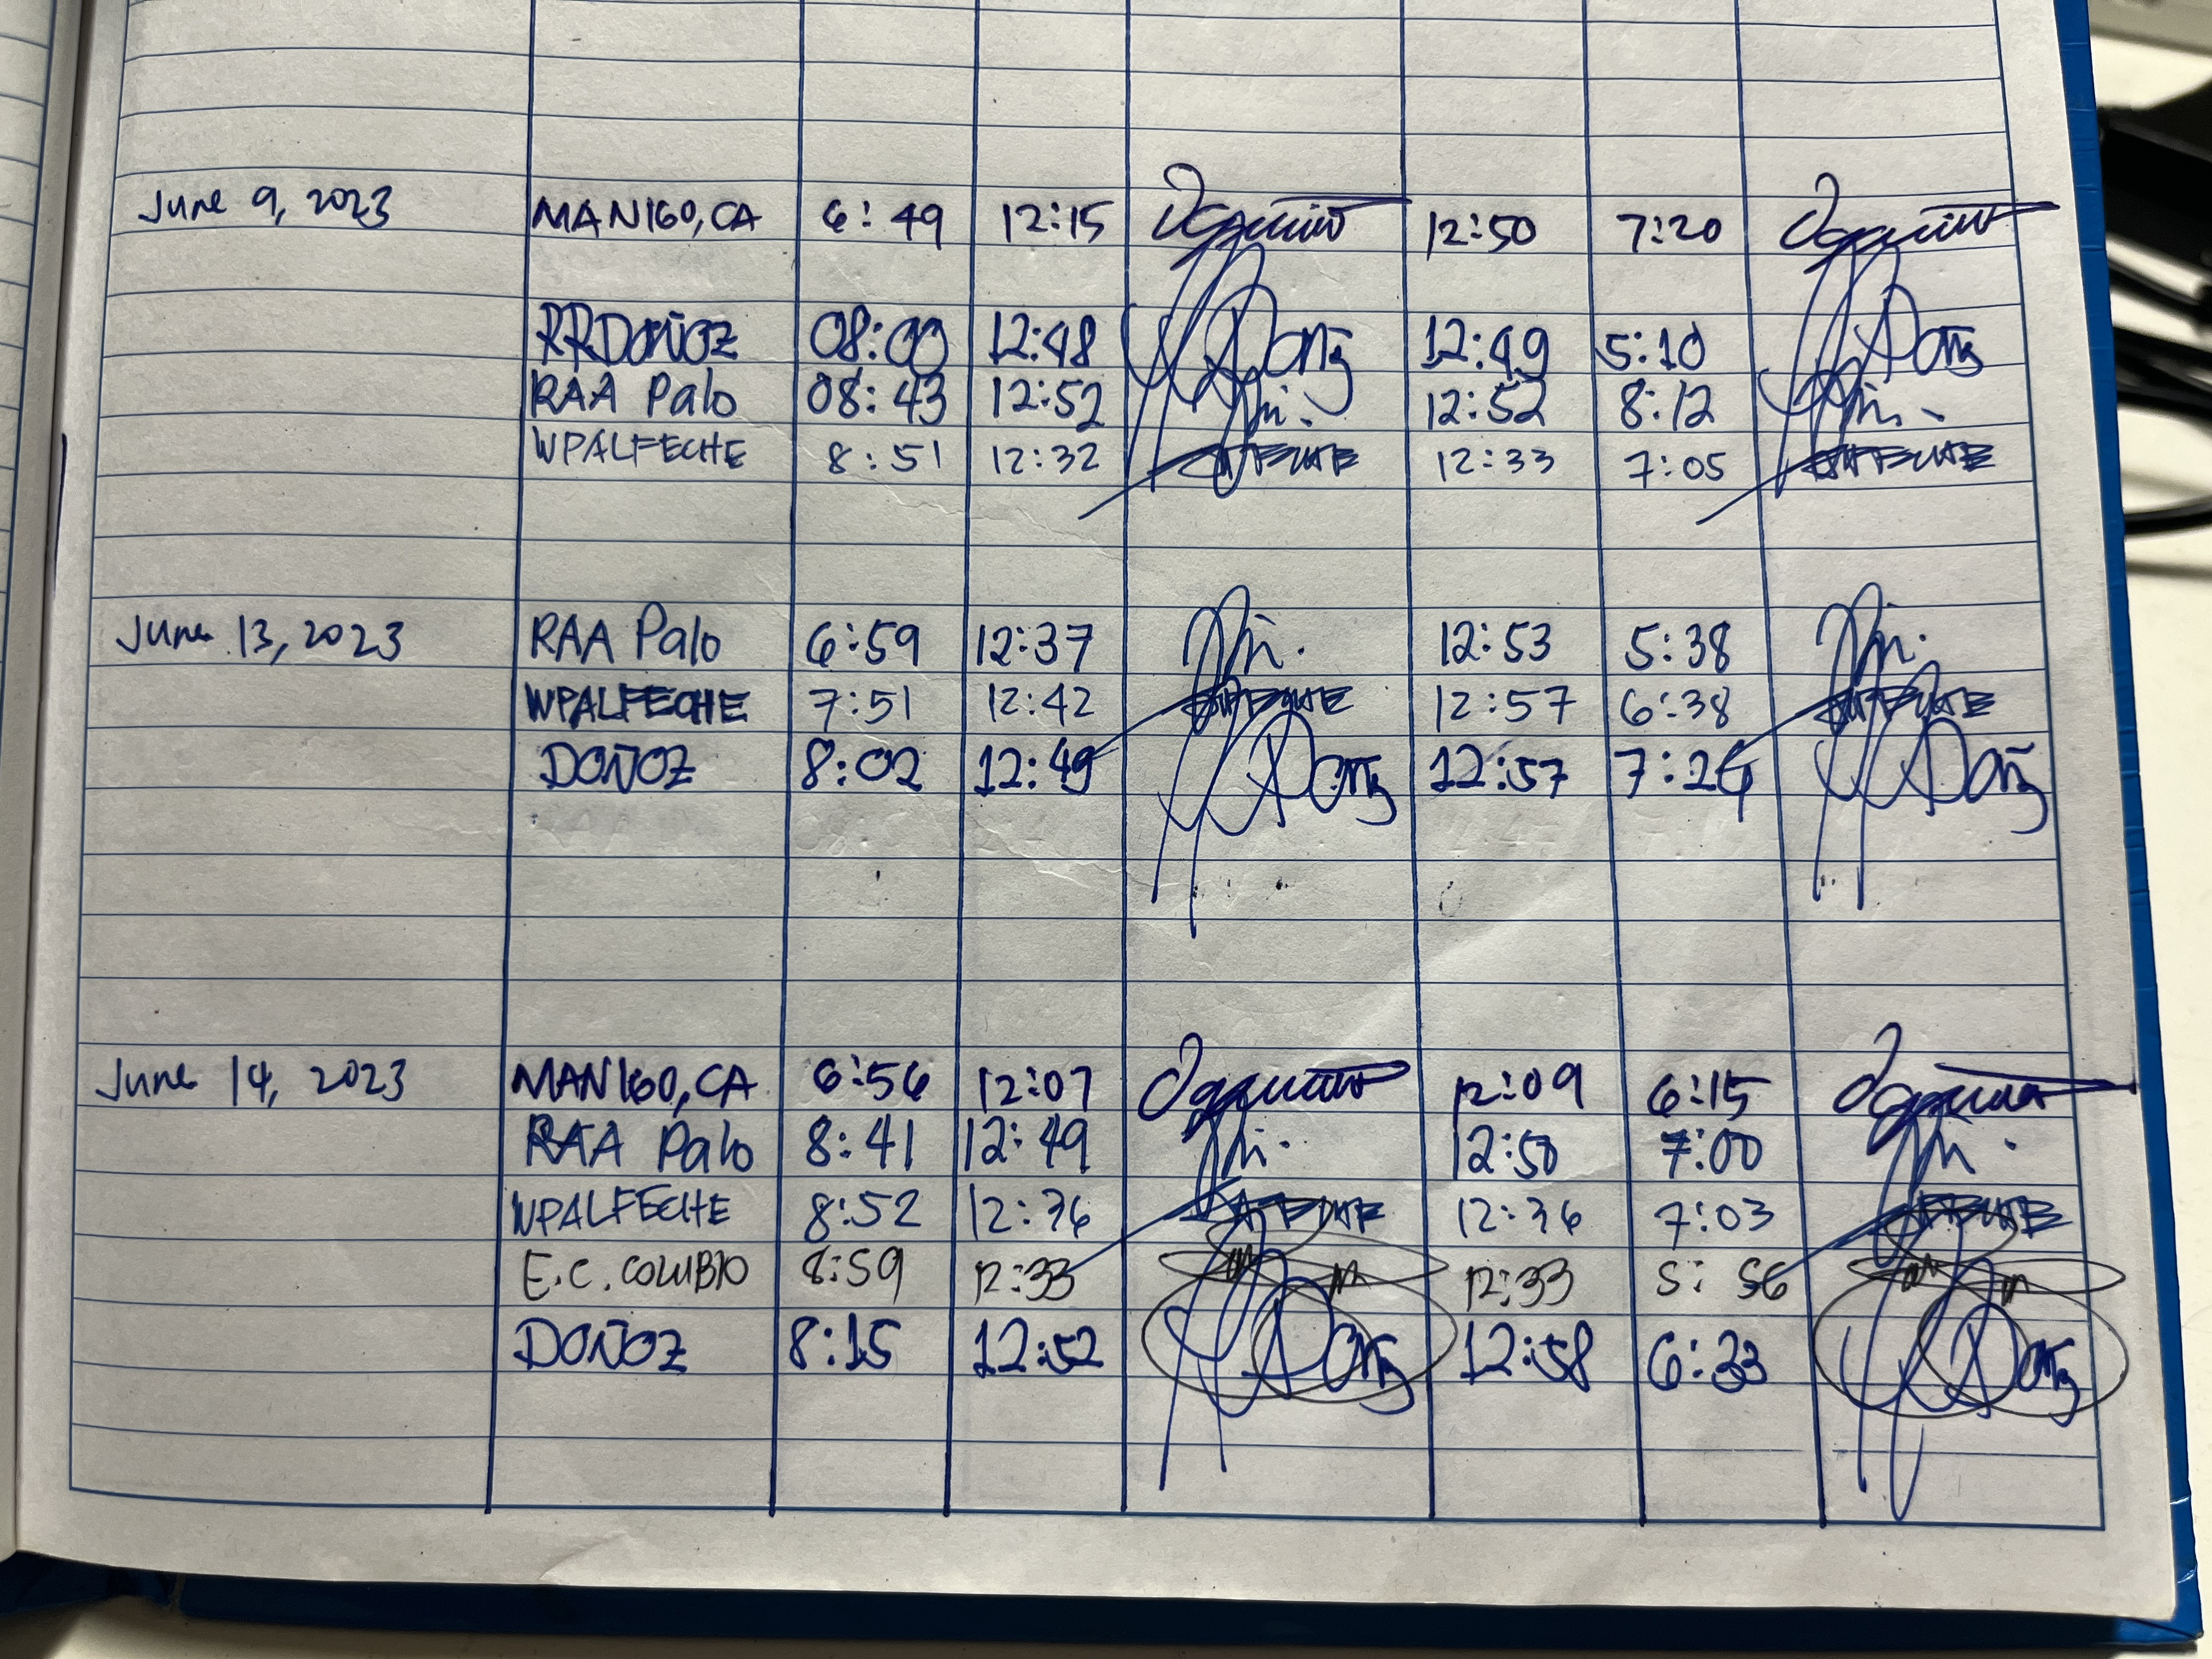 June 9, 2023 MANIGO, CA 6:49 12:15 12:50 7:20
RRDOÑOZ 08:00 12:48 12:49 5:10
RAA Palo 08:43 12:52 12:52 8:12
WPALFECHE 8:51 12:32 12:33 7:05
June 13, 2023 RAA Palo 6:59 12:37 12:53 5:38
WPALFECHE 7:51 12:42 12:57 6:38
DOÑOZ 8:02 12:49 12:57 7:24
June 14, 2023 MANIGO, CA 6:56 12:07 12:09 6:15
RAA Palo 8:41 12:49 12:50 7:00
WPALFECHE 8:52 12:36 12:36 7:03
E.C. COLUBIO 8:59 12:33 12:33 5:56
DOÑOZ 8:15 12:52 12:58 6:33